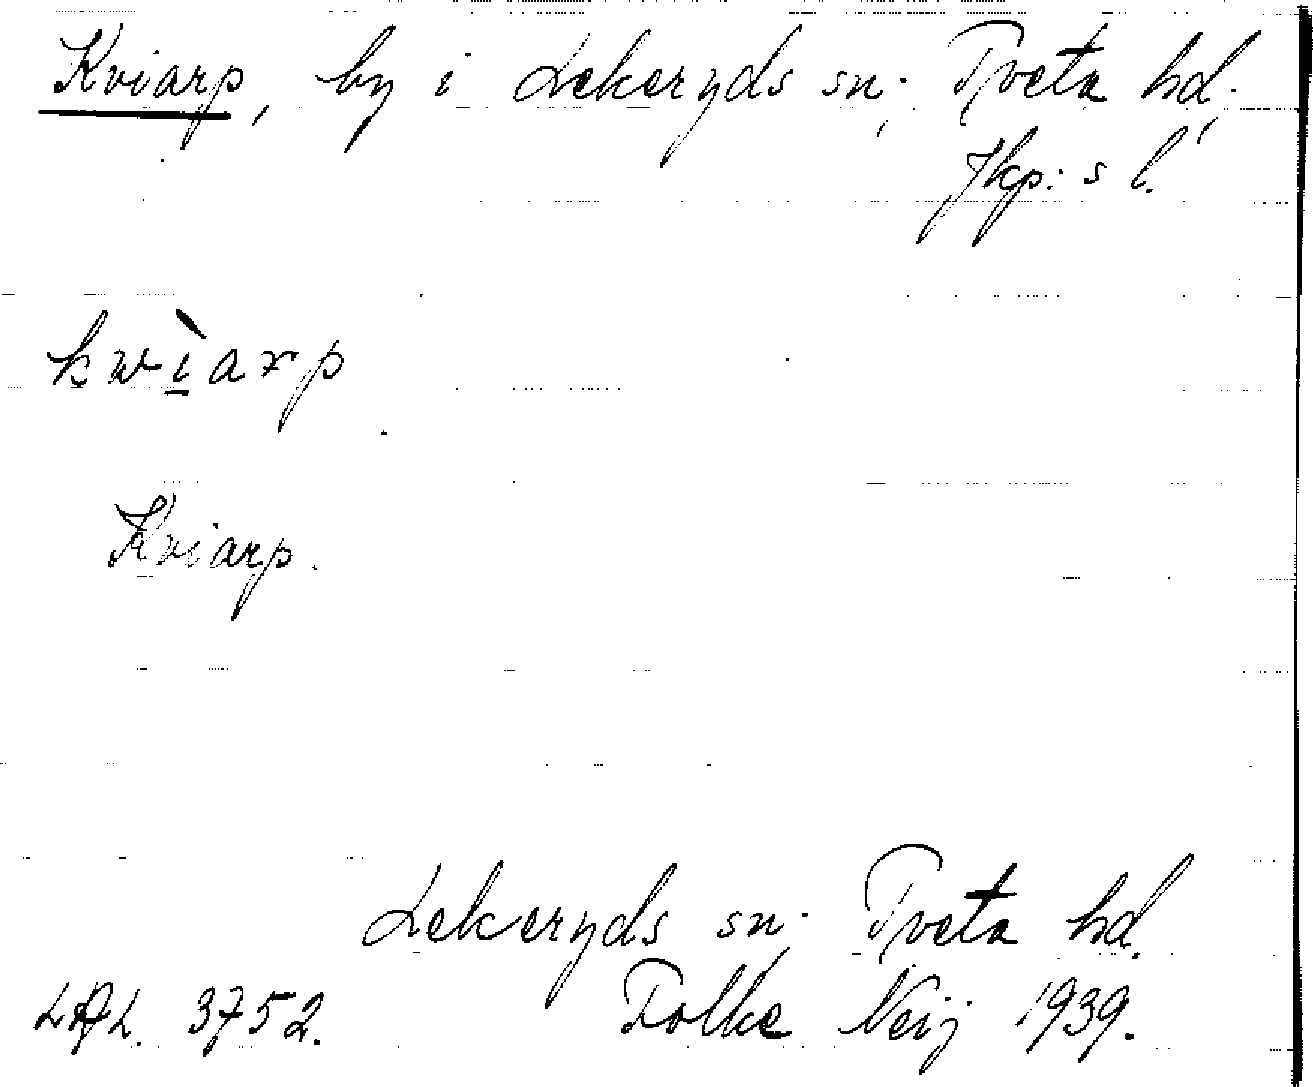 Kviarp, by i Lekeryds sn; Tveta hd;
Jkp: s l.
kwìarp
Kviarp.
Lekeryds sn; Tveta hd.
LAL. 3752. Folke Neij 1939.